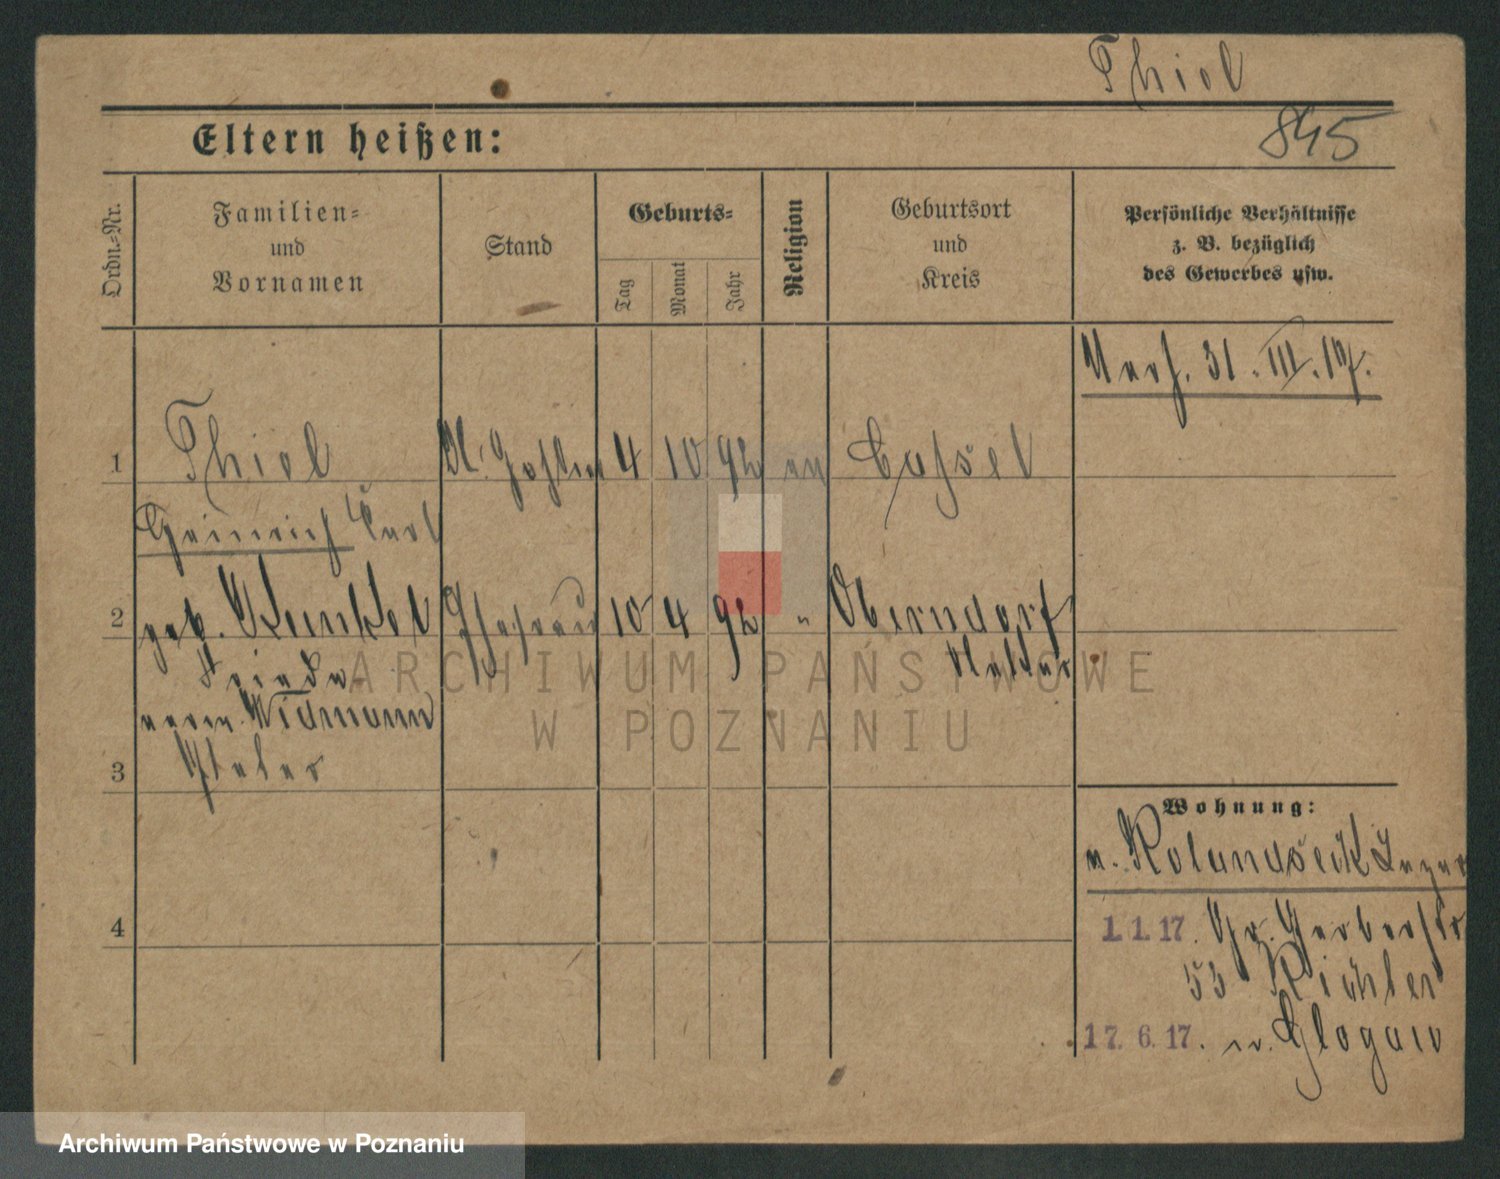 Thiel
845
Eltern heißen:
Ordn.=Nr.
Familien=
und
Vornamen
Stand
Geburts=
Tag
Monat
Jahr
Religion
Geburtsort
und
Kreis
Persönliche Verhältnisse
z. B. bezüglich
des Gewerbes usw.
Verh. 31. III. 17.
1 Thiel 4 10 92 ev Cassel
Heinrich Carl
2 geb. Kunkel Ehefrau 10 4 92 " Oberndorf
Frieda
verw. Widmann
3
4
Wohnung:
n. Rolandseck
1. 1. 17. Gr. Gerberstr
53 Richter
17. 6. 17. n. Glogau
ARCHIWUM PAŃSTWOWE
W POZNANIU
Archiwum Państwowe w Poznaniu